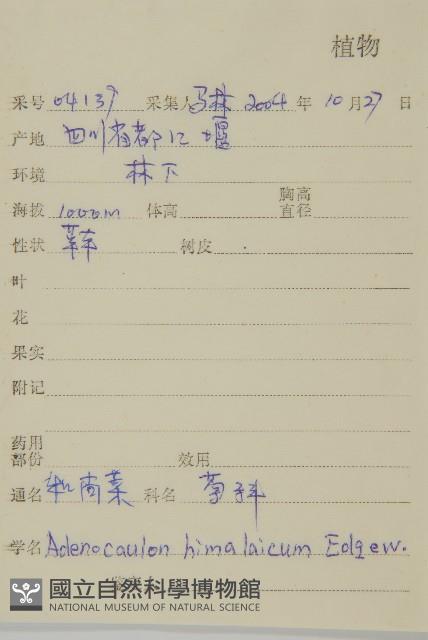 植物
采号 04137 采集人 马林 2004 年 10 月 27 日
产地 四川省都江堰
环境 林下
胸高
海拔 1000m 体高 直径
性状 草本 树皮
叶
花
果实
附记
药用
部份 效用
通名 和尚菜 科名 菊科
学名 Adenocaulon himalaicum Edgew.
國立自然科學博物館
NATIONAL MUSEUM OF NATURAL SCIENCE